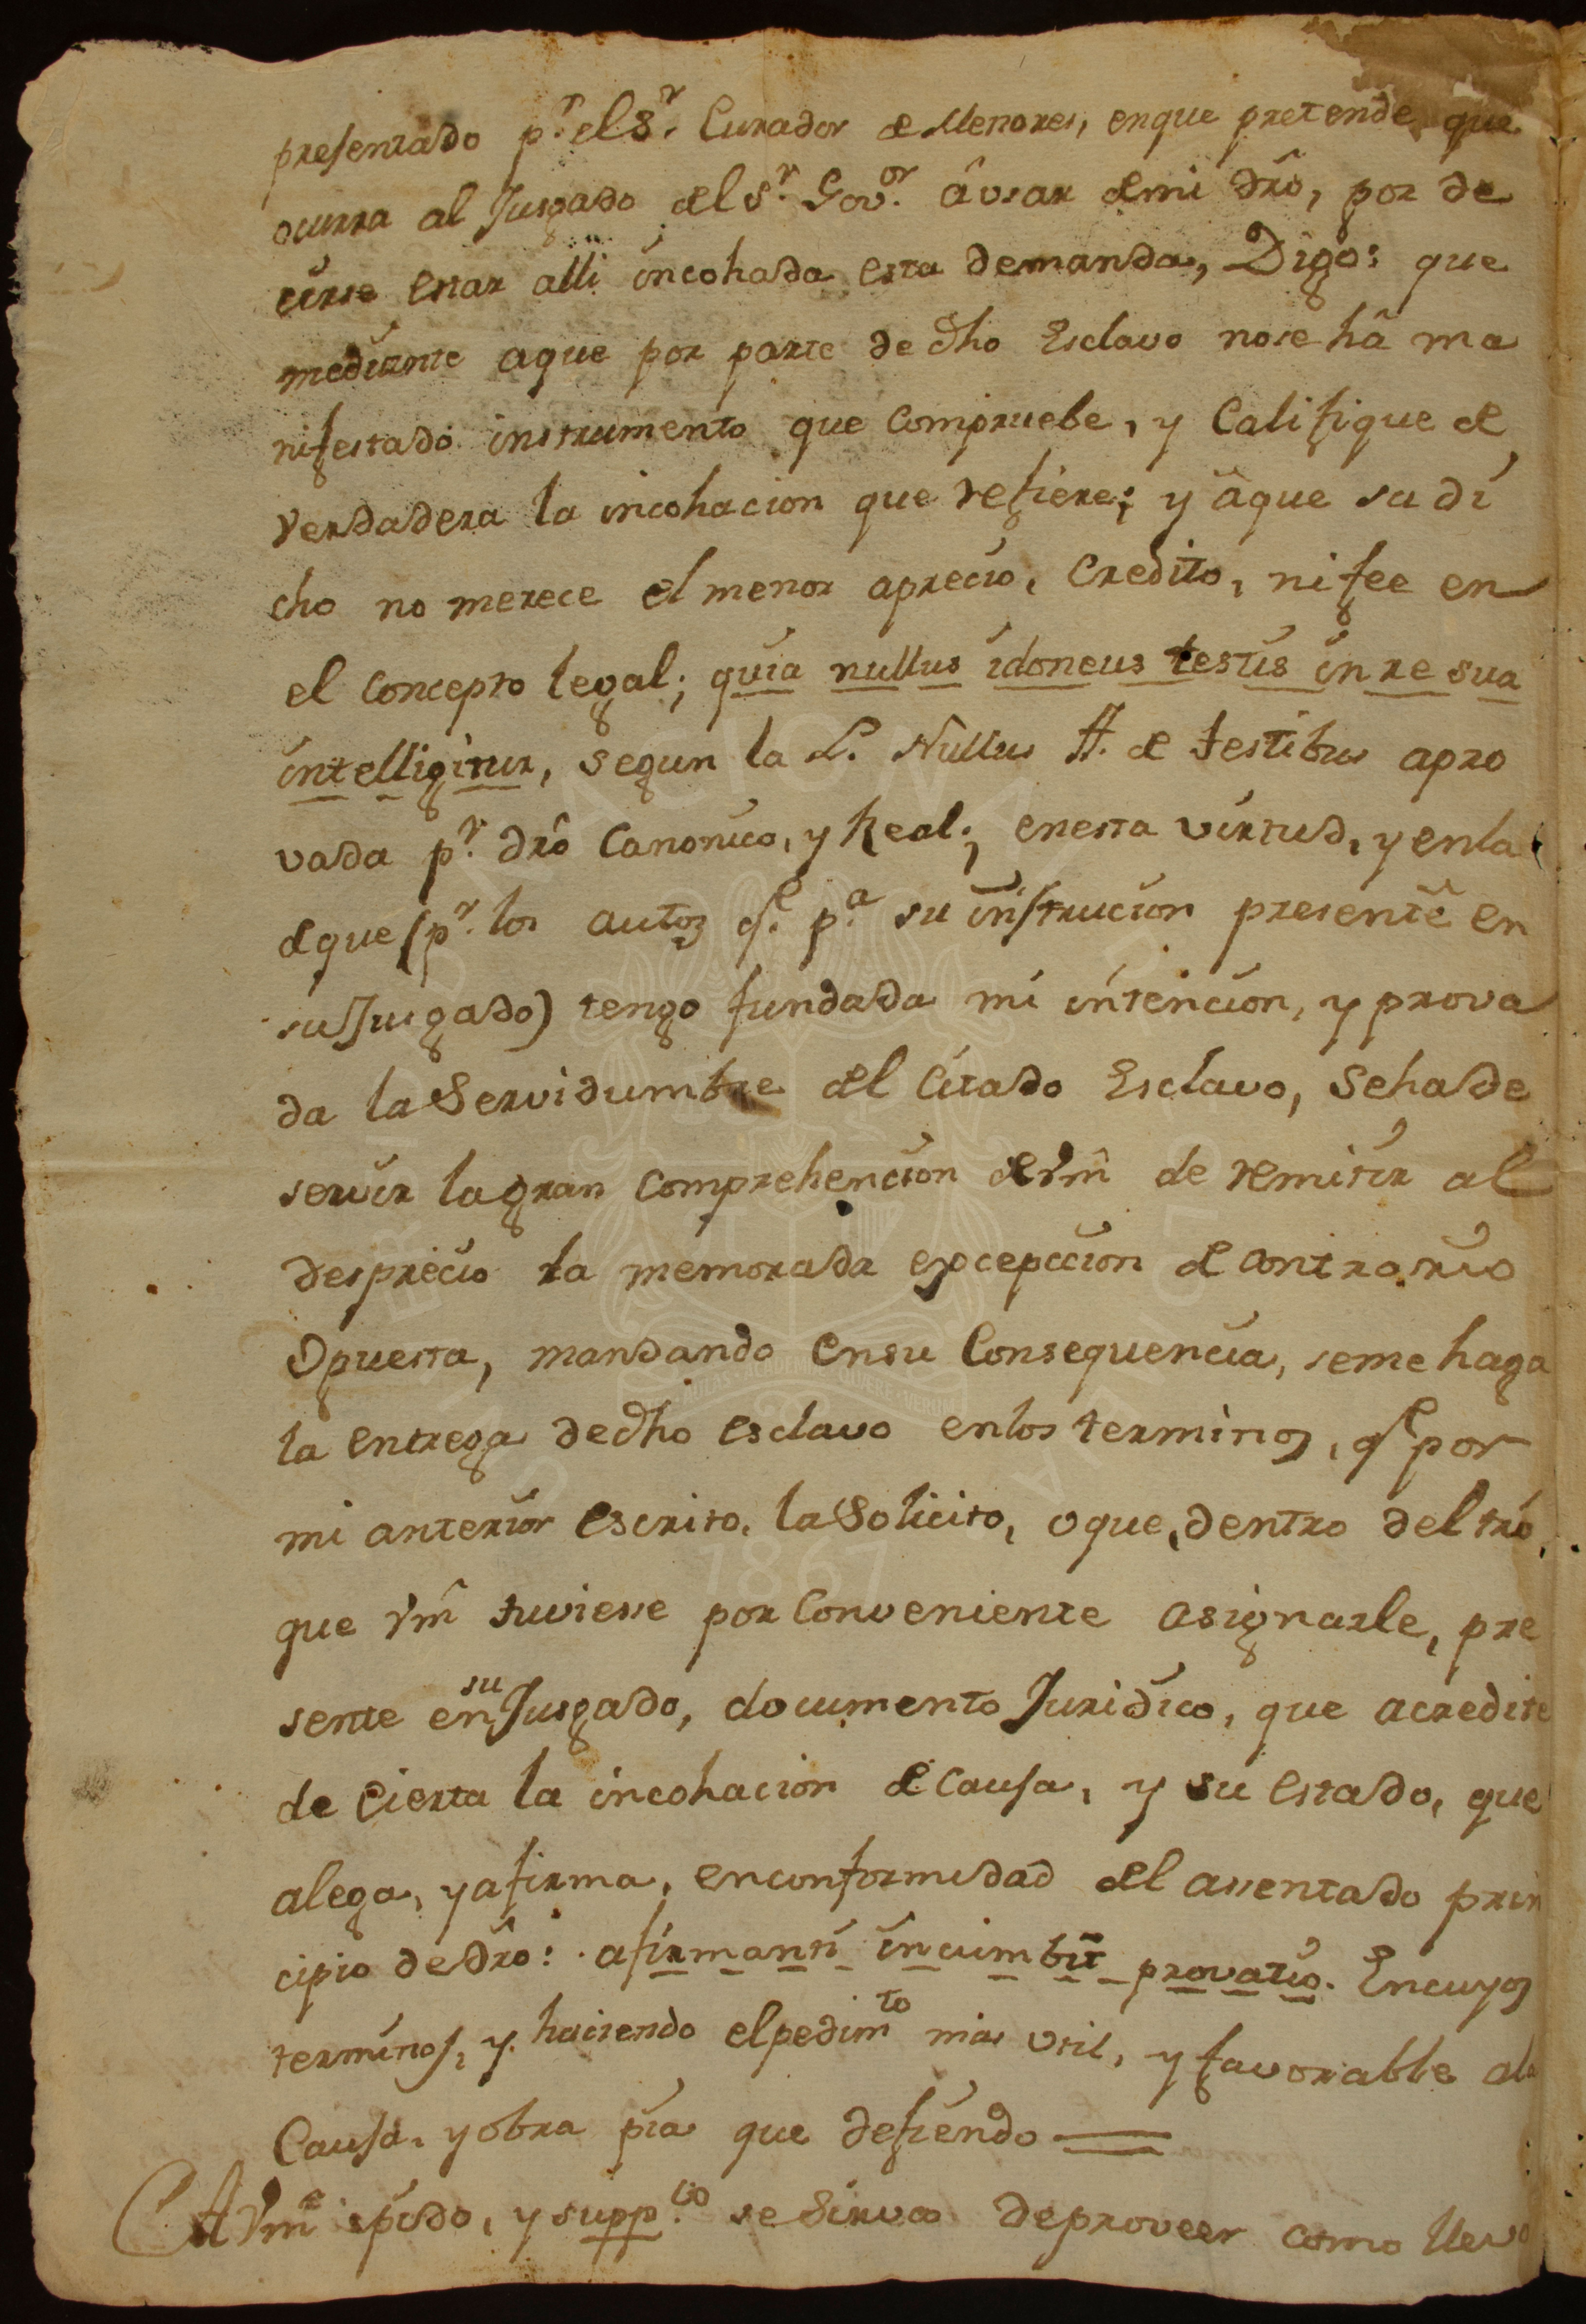 presentado p.r el S.r Curador de Menores, enque pretende que
ocurra al Jusgado del S.r Gov.or âusar de mi dr̃o, por de
cirse estar alli incohada esta demanda, Digo: que
mediante aque por parte de dho Esclavo nose hâ ma
nifestado instrumento que compruebe, y Califique de
verdadera la incohacion que refiere; y âque su di
cho no merece el menor aprecio, credito, ni fee en
el concepto legal; quia nullus idoneus testis in re sua
intelligitur, segun la L. Nullus ff. de testibus apro
vada p.r dr̃o Canonico, y Real; enesta virtud, y enla
de que (p.r los autos q.e p.a su instrucion presente en
suJusgado) tengo fundada mi intencion, y prova
da la Servidumbre del citado Esclavo, Sehade
servir lagran comprehencion de Vm̃ de remitir al
desprecio la memorada excepccion de contrario
Opuesta, mandando ensu Consequencia, seme haga
la entrega dedho esclavo enlos terminos, q.e por
mi anterior escrito, la Solicito, o que, dentro del tr̃o,
que Vm̃ tuviesse por Conveniente asignarle, pre
sente en su Jusgado, documento Juridico, que acredite
de cierta la incohacion de causa, y su estado, que
alega, y afirma, enconformidad del assentado prin
cipio de dr̃o: afirmanti incumbit provatio. Encuyos
terminos, y haciendo elpedim.to mas util, y favorable ala
Causa, y obra pia que defiendo
A Vm̃ pido, y supp.co se Sirva deproveer como llevo
UNIVERSIDAD NACIONAL DE COLOMBIA
1867